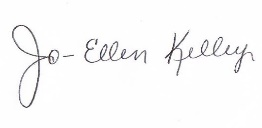 Jo-Ellen Kelley